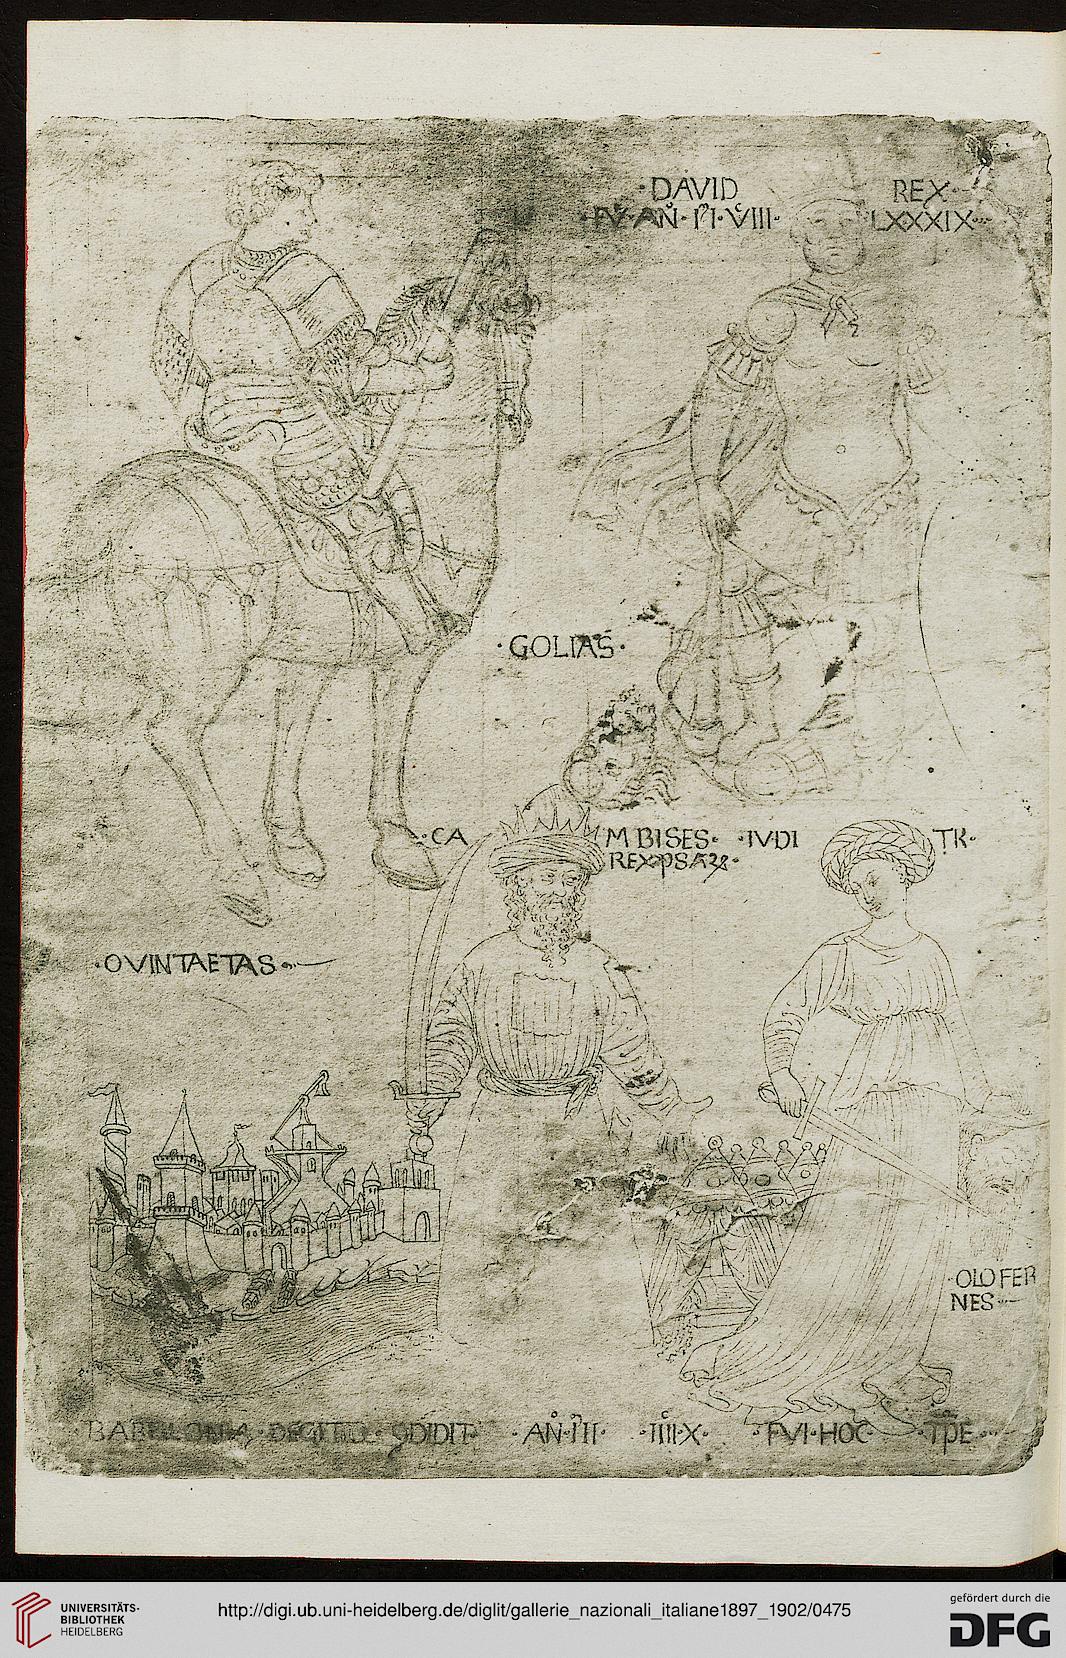 ·DAVID REX·
·FV·AN·M·I·VIII· LXXXIX···
·GOLIAS·
·CA MBISES· ·IVDI TK·
REX·PSAR·
·OVINTAETAS·
·OLOFER
NES·
BABILONIA DEGITUD ODIDIT· ·AN·III· ·IIII·X· ·FVI·HOC· ·TPE··
UNIVERSITÄTS-
BIBLIOTHEK
HEIDELBERG
http://digi.ub.uni-heidelberg.de/diglit/gallerie_nazionali_italiane1897_1902/0475
gefördert durch die
DFG